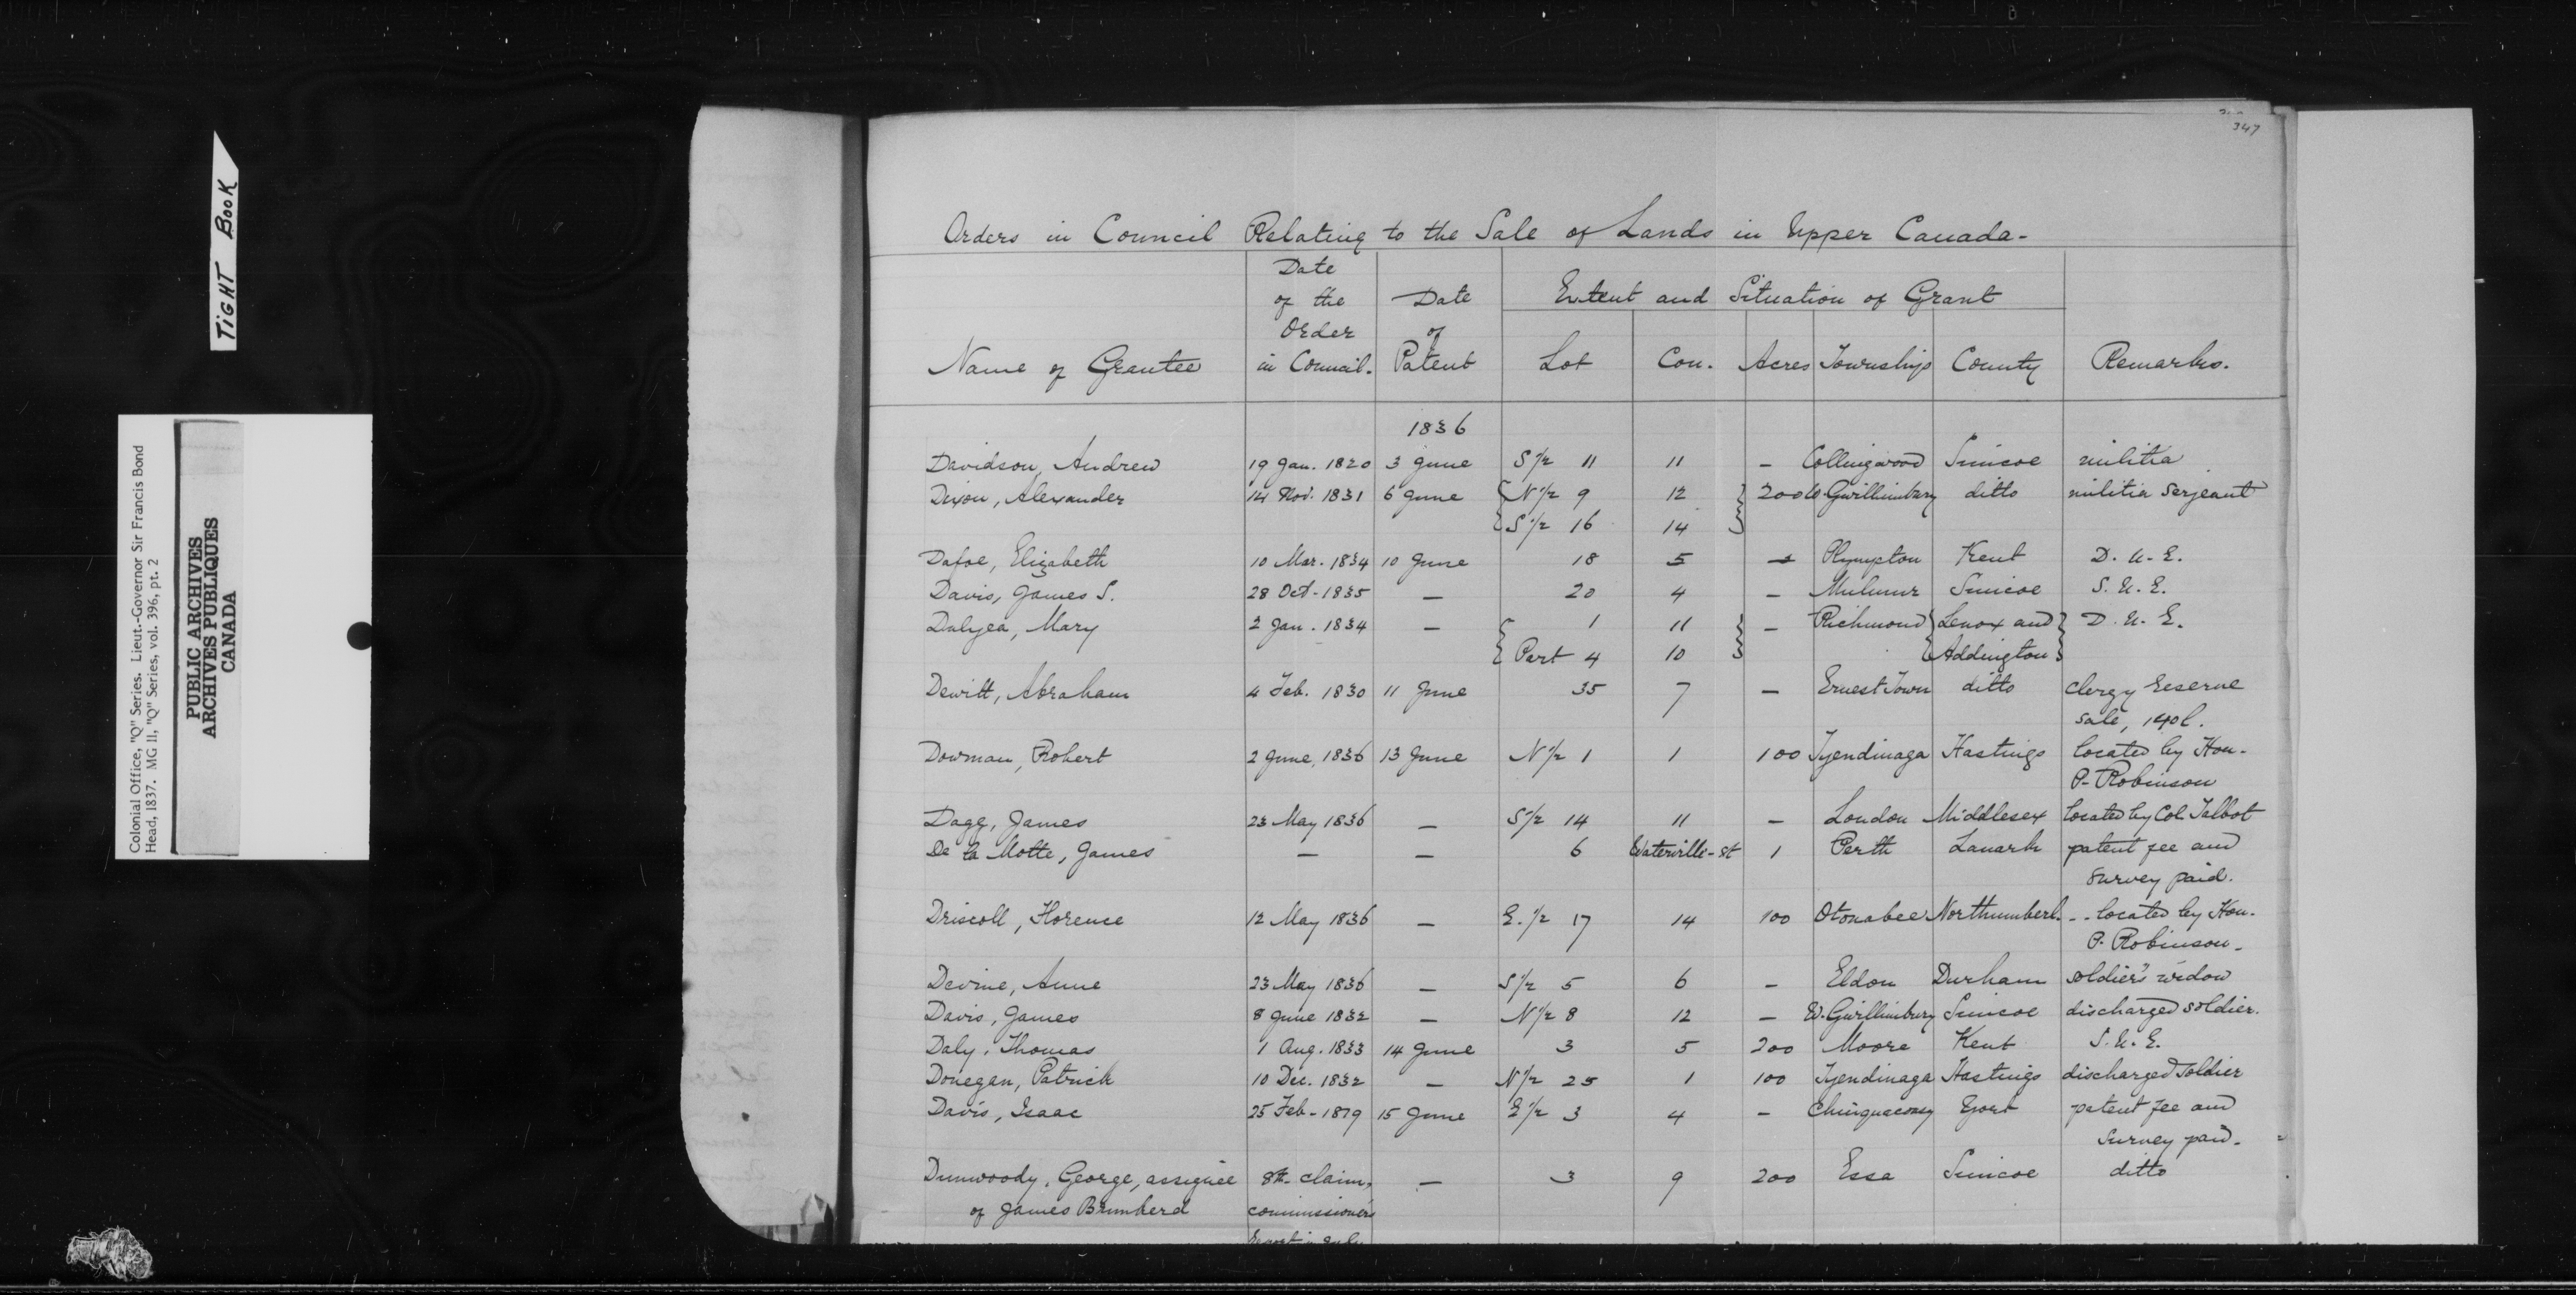 TIGHT BOOK
Colonial Office, "Q" Series. Lieut.-Governor Sir Francis Bond
Head, 1837. MG 11, "Q" Series, vol. 396, pt. 2
PUBLIC ARCHIVES
ARCHIVES PUBLIQUES
CANADA
347
Orders in Council Relating to the Sale of Lands in Upper Canada-
Name of Grantee | Date of the Order in Council. | Date of Patent | Extent and Situation of Grant | Remarks.
Lot | Con. | Acres | Townships | County
1836
Davidson, Andrew 19 Jan. 1820 3 June S 1/2 11 11 - Collingwood Simcoe militia
Dixon, Alexander 14 Nov. 1831 6 June N 1/2 9 12 200 W. Gwillimbury ditto militia Serjeant
S 1/2 16 14
Dafoe, Elizabeth 10 Mar. 1834 10 June 18 5 - Plympton Kent D. U. E.
Davis, James S. 28 Oct. 1835 - 20 4 - Mulmur Simcoe S. U. E.
Dulyea, Mary 2 Jan. 1834 - 1 11 - Richmond Lenox and D. U. E.
Part 4 10 Addington
Dewitt, Abraham 4 Feb. 1830 11 June 35 7 - Ernest Town ditto clergy reserve
sale, 140l.
Dowman, Robert 2 June, 1836 13 June N 1/2 1 1 100 Tyendinaga Hastings located by Hon.
P. Robinson
Dagg, James 23 May 1836 - S 1/2 14 11 - London Middlesex located by Col. Talbot
De la Motte, James - - 6 Waterville-st 1 Perth Lanark patent fee and
survey paid.
Driscoll, Florence 12 May 1836 - E. 1/2 17 14 100 Otonabee Northumberl. - - located by Hon.
P. Robinson-
Devine, Anne 23 May 1836 - S 1/2 5 6 - Eldon Durham soldier's widow
Davis, James 8 June 1832 - N 1/2 8 12 - W. Gwillimbury Simcoe discharged soldier.
Daly, Thomas 1 Aug. 1833 14 June 3 5 200 Moore Kent S. U. E.
Donegan, Patrick 10 Dec. 1832 - N 1/2 25 1 100 Tyendinaga Hastings discharged Soldier
Davis, Isaac 25 Feb- 1819 15 June E 1/2 3 4 - Chinguacousy York patent fee and
survey paid.
Dunwoody, George, assignee 8th claim, - 3 9 200 Essa Simcoe ditto
of James Brumherd commissioners
report in July